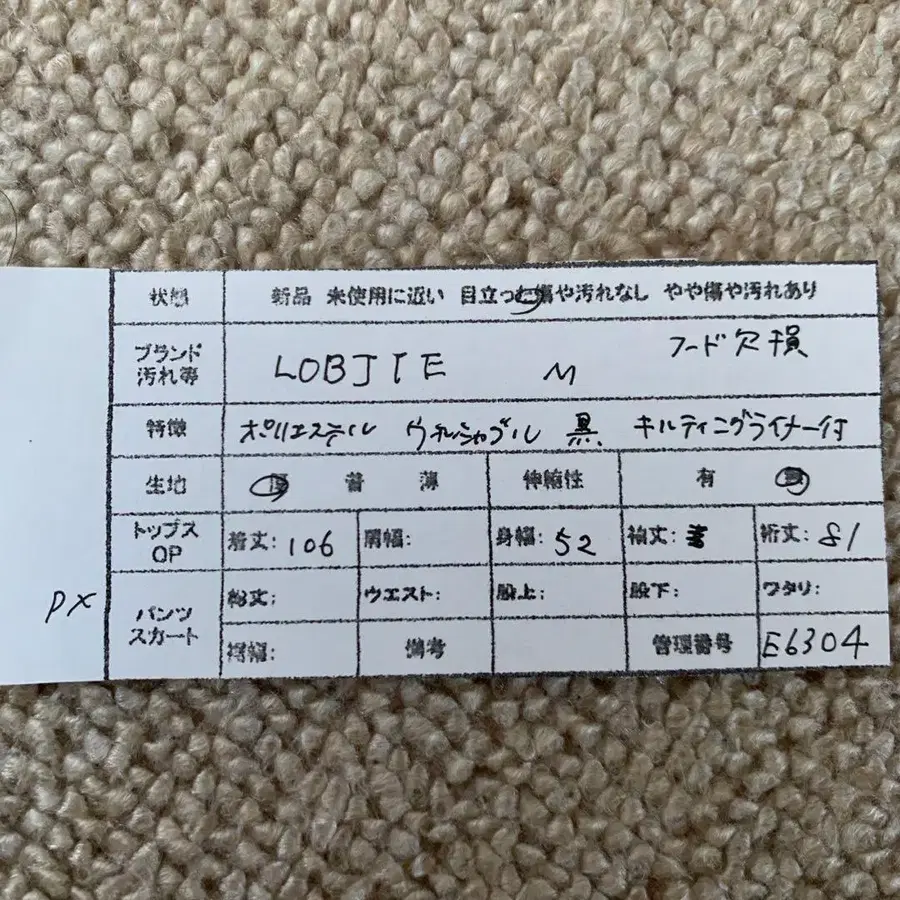 状態 新品 未使用に近い 目立った傷や汚れなし やや傷や汚れあり
ブランド
汚れ等 LOBJIE M フード欠損
特徴 ポリエステル ウォッシャブル 黒 キルティングライナー付
生地 厚 普 薄 伸縮性 有
トップス
OP 着丈: 106 肩幅: 身幅: 52 袖丈: 裄丈: 81
PX
パンツ
スカート 総丈: ウエスト: 股上: 股下: ワタリ:
裾幅: 備考 管理番号 E6304